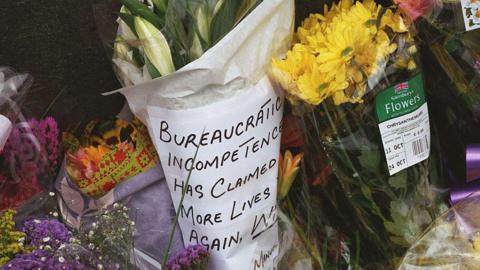 BUREAUCRATIC
INCOMPETENCE
HAS CLAIMED
MORE LIVES
AGAIN,
Sainsbury's
Flowers
CHRYSANTHEMUM
11 OCT
14 OCT
OCT